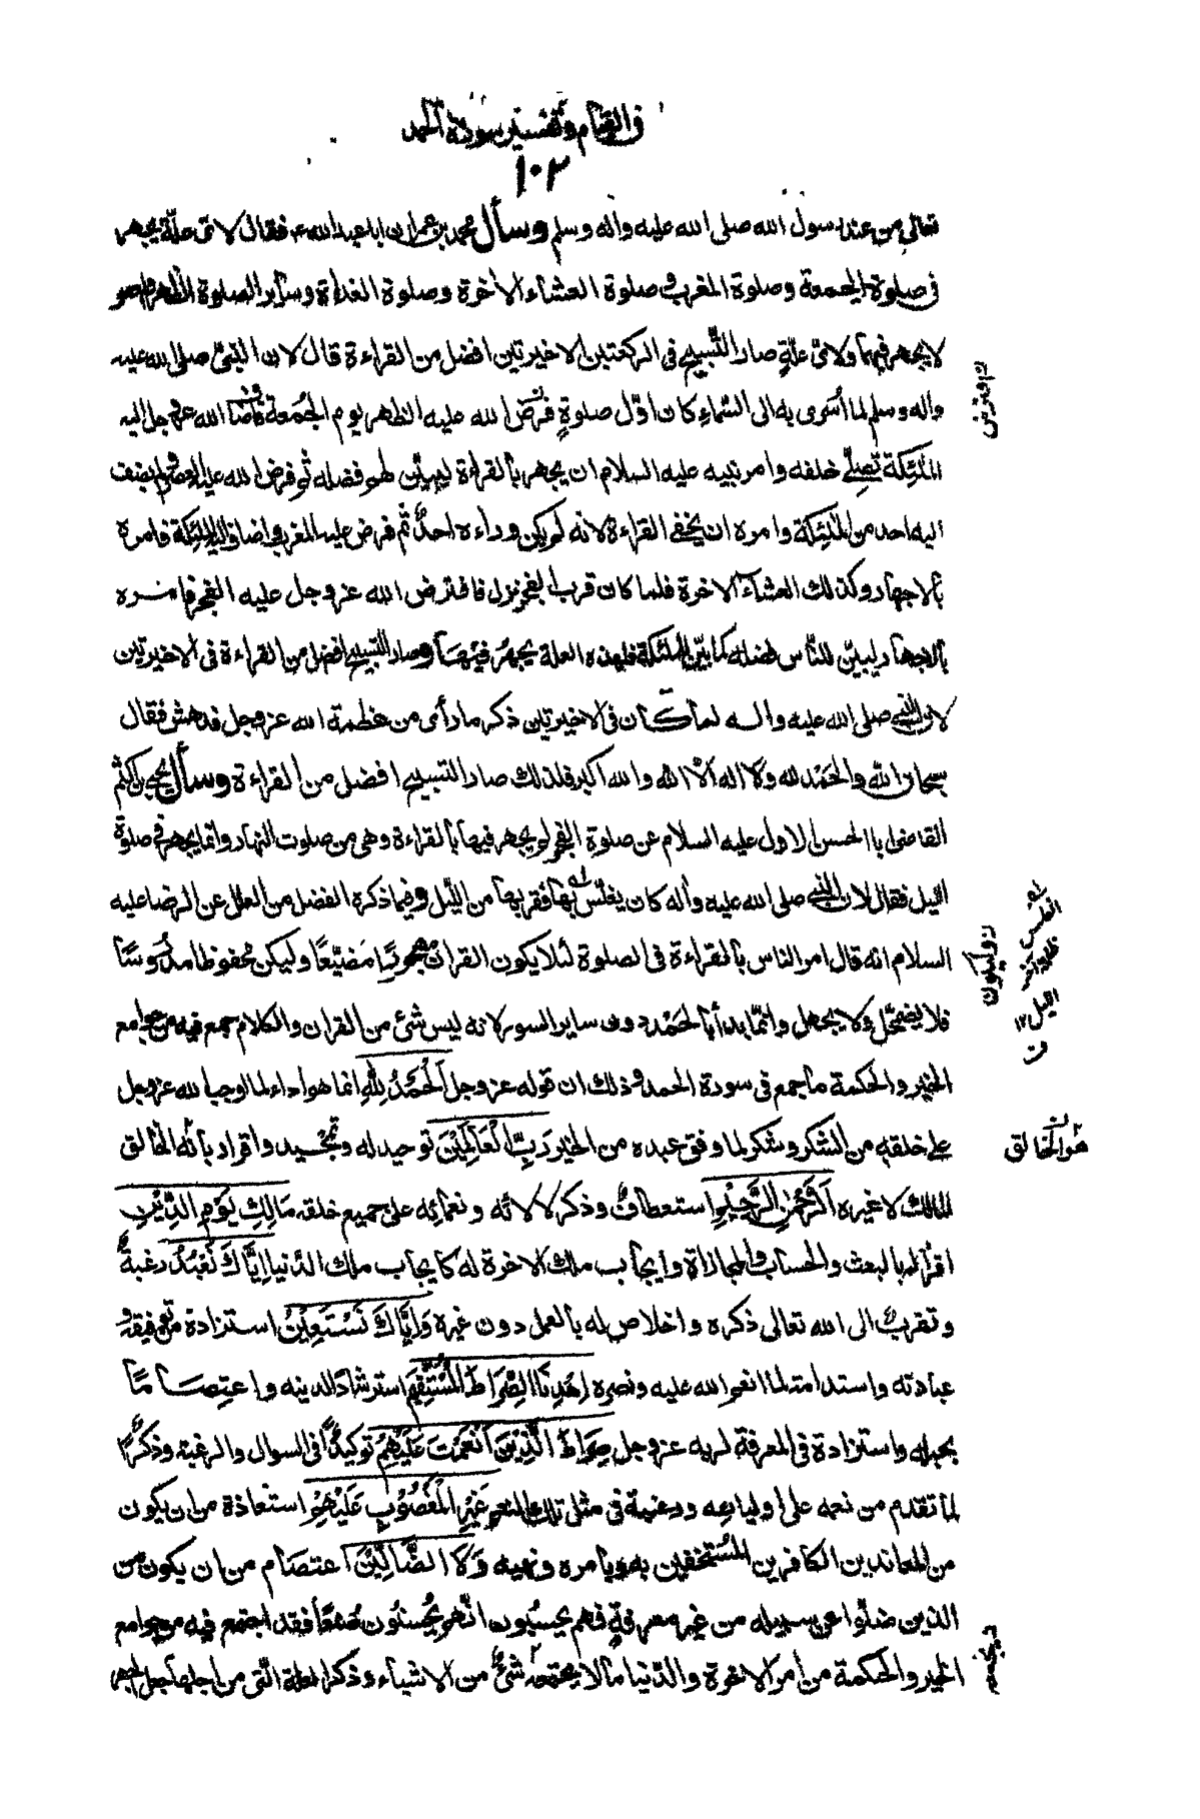 فى القيام وتفسير سورة الحمد
١٠٢
تعالى من عند رسول الله صلى الله عليه واله وسلم وسأل محمد بن عمران ابا عبد الله ع فقال لاى علّة يجهر
فى صلوة الجمعة وصلوة المغرب و صلوة العشاء الاخرة وصلوة الغداة وسائر الصلوة الظهر والعصر
لا يجهر فيهما ولاىّ علّةٍ صار التّسبيح فى الركعتين الاخيرتين افضل من القراءة قال لان النبىّ صلى الله عليه
واله وسلم لما أسرى به الى السّماء كان اوّل صلوةٍ فرض الله عليه الظهر يوم الجُمعة فاضاف الله عز وجل اليه
الملئكة تصلّى خلفه وامر نبيه عليه السلام ان يجهر بالقراءة ليبيّن لهم فضله ثم فرض الله عليه العصر ولم يضف
اليه احد من الملئكة وامره ان يخفى القراءة لانه لم يكن وراءه احدٌ ثم فرض عليه المغرب واضاف اليه الملئكة فامره
بالاجهار وكذلك العشاء الاخرة فلما كان قرب الفجر نزل فافترض الله عز وجل عليه الفجر فامره
بالاجهار ليبيّن للنّاس فضله كما بيّن للملئكة فلهذه العلة يجهر فيها وصار التسبيح افضل من القراءة فى الاخيرتين
لان النبى صلى الله عليه واله لما كان فى الاخيرتين ذكر ما رأى من عظمة الله عز وجل فدهش فقال
سبحان الله والحمد لله ولا اله الا الله والله اكبر فلذلك صار التسبيح افضل من القراءة وسأل يحيى بن اكثم
القاضى ابا الحسن الاول عليه السلام عن صلوة الفجر لم يجهر فيها بالقراءة وهى من صلوت النهار وانما يجهر فى صلوة
الليل فقال لان النبى صلى الله عليه وآله كان يغلّس بها فقربها من الليل وفيما ذكره الفضل من العلل عن الرضا عليه
السلام انه قال امر الناس بالقراءة فى الصلوة لئلا يكون القران مهجورًا مضيّعًا وليكن محفوظا مدروسًا
فلا يضمحلّ ولا يجهل وانّما بدأ بالحمد دون ساير السور لانه ليس شئ من القران والكلام جمع فيه من جوامع
الخير والحكمة ما جمع فى سورة الحمد وذلك ان قوله عز وجل اَلْحَمْدُ لِلّٰهِ انما هو اداء لما اوجب الله عز وجل
على خلقه من الشكر وشكر لما وفق عبده من الخير رَبِّ الْعَالَمِيْنَ توحيد له وتمجيد واقرار بانه الخالق
المالك لا غيره اَلرَّحْمٰنِ الرَّحِيْمِ استعطافٌ وذكر لالائه ونعمائه على جميع خلقه مَالِكِ يَوْمِ الدِّيْنِ
اقرار له بالبعث والحساب والمجازاة وايجاب ملك الاخرة له كايجاب ملك الدّنيا اِيَّاكَ نَعْبُدُ رغبةٌ
وتقربٌ الى الله تعالى ذكره واخلاص له بالعمل دون غيره وَاِيَّاكَ نَسْتَعِيْنُ استزادة من توفيقه و
عبادته واستدامة لما انعم الله عليه ونصره اِهْدِنَا الصِّرَاطَ الْمُسْتَقِيْمَ استرشادًا لدينه واعتصامًا
بحبله واستزادة فى المعرفة لربه عز وجل صِرَاطَ الَّذِيْنَ اَنْعَمْتَ عَلَيْهِمْ توكيدًا فى السوال والرغبة وذكرًا
لما تقدم من نعمه على اوليائه ورغبة فى مثل تلك النعم غَيْرِ الْمَغْضُوْبِ عَلَيْهِمْ استعاذة من ان يكون
من المعاندين الكافرين المستخفين به وبامره ونهيه وَلَا الضَّالِّيْنَ اعتصام من ان يكون من
الذين ضلّوا عن سبيله من غير معرفةٍ فهم يحسبون انّهم يُحسنون صُنعًا فقد اجتمع فيه من جوامع
الخير والحكمة من امر الاخرة والدّنيا ما لا يجمعه شئٌ من الاشياء وذكر العلة الّتى من اجلها جعل الجهر
افترض
وليكون
الغلس
ظلمة آخر
الليل
هو الخالق